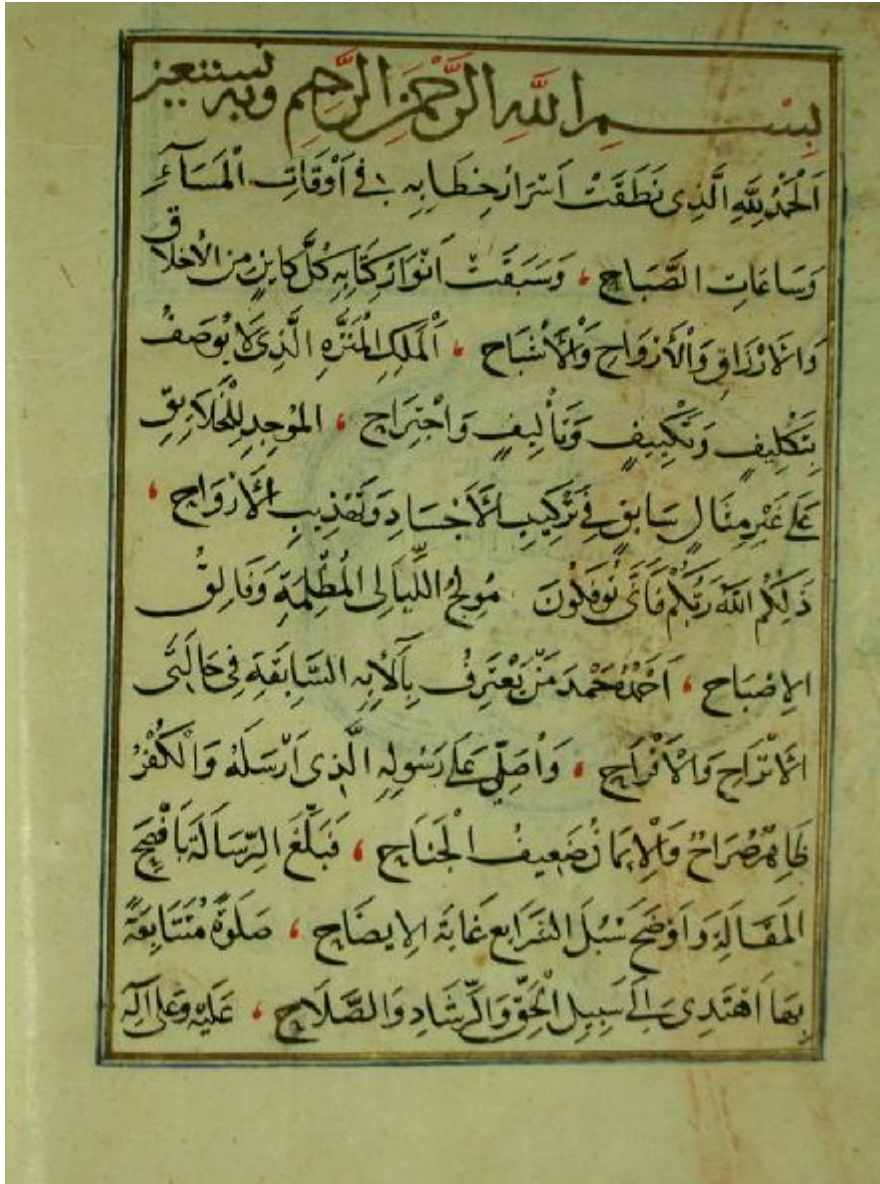 بِسْمِ اللَّهِ الرَّحْمَنِ الرَّحِيمِ وبه نستعين
اَلْحَمْدُ لِلَّهِ الَّذِى نَطَقَتْ اَسْرَارُ خِطَابِهِ فِى اَوْقَاتِ الْمَسَآءِ
وَسَاعَاتِ الصَّبَاحِ ، وَسَبَقَتْ اَنْوَارُ كِتَابِهِ كُلَّ كَايِنٍ مِنَ الْاَخْلَاقِ
وَالاَرْزَاقِ وَالْاَرْوَاحِ وَالْاَشْبَاحِ ، اَلْمَلِكِ الْمُنَزَّهِ الَّذِى لَا يُوصَفُ
بِتَكْلِيفٍ وَتَكْيِيفٍ وَتَأْلِيفٍ وَاجْتِرَاحِ ، الموُجِدِ لِلْخَلَايِقِ
عَلَى غَيْرِ مِثَالٍ سَابِقٍ فِى تَرْكِيبِ الْاَجْسَادِ وَتَهْذِيبِ الْاَرْوَاحِ ،
ذَلِكُمُ اللَّهُ رَبُّكُمْ فَاَنَّى تُوفَكُونَ مُولِجُ اللَّيَالِى الْمُظْلِمَةِ وَفَالِقُ
الاِصْبَاحِ ، اَحْمَدُهُ حَمْدَ مَنْ يَعْتَرِفُ بِآلَآيِهِ السَّابِقَةِ فِى حَالَتَىِ
الْاَتْرَاحِ وَالْاَفْرَاحِ ، وَاُصَلِّى عَلَى رَسُولِهِ الَّذِى اَرْسَلَهُ وَالْكُفْرُ
ظَاهِرٌ صُرَاحٌ وَالْاِيمَانُ ضَعِيفُ الْجَنَاحِ ، فَبَلَّغَ الرِّسَالَةَ بِاَفْصَحِ
الْمَقَالَةِ وَاَوْضَحَ سُبُلَ الشَّرَايِعِ غَايَةَ الاِيضَاحِ ، صَلَوةً مُتَتَابِعَةً
بِهَا اَهْتَدِى اِلَى سَبِيلِ الْحَقِّ وَالرَّشَادِ وَالصَّلَاحِ ، عَلَيْهِ وَعَلَى آلِهِ